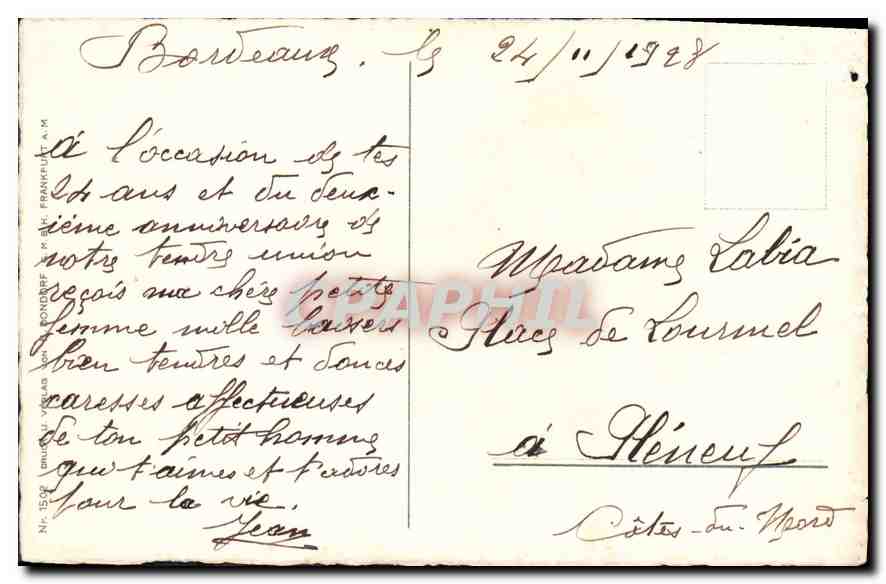 Bordeaux, le 24/11/1928
à l'occasion de tes
24 ans et du deux-
ième anniversaire de
notre tendre union
reçois ma chère petite
femme mille baisers
bien tendres et douces
caresses affectueuses
de ton petit homme
qui t'aime et t'adore
pour la vie.
Jean
Madame Labia
Place de Lourmel
à Pléneuf
Côtes-du-Nord
Nr. 1502 DRUCK U. VERLAG VON B. DONDORF G.M.B.H. FRANKFURT A.M
CPAPHIL